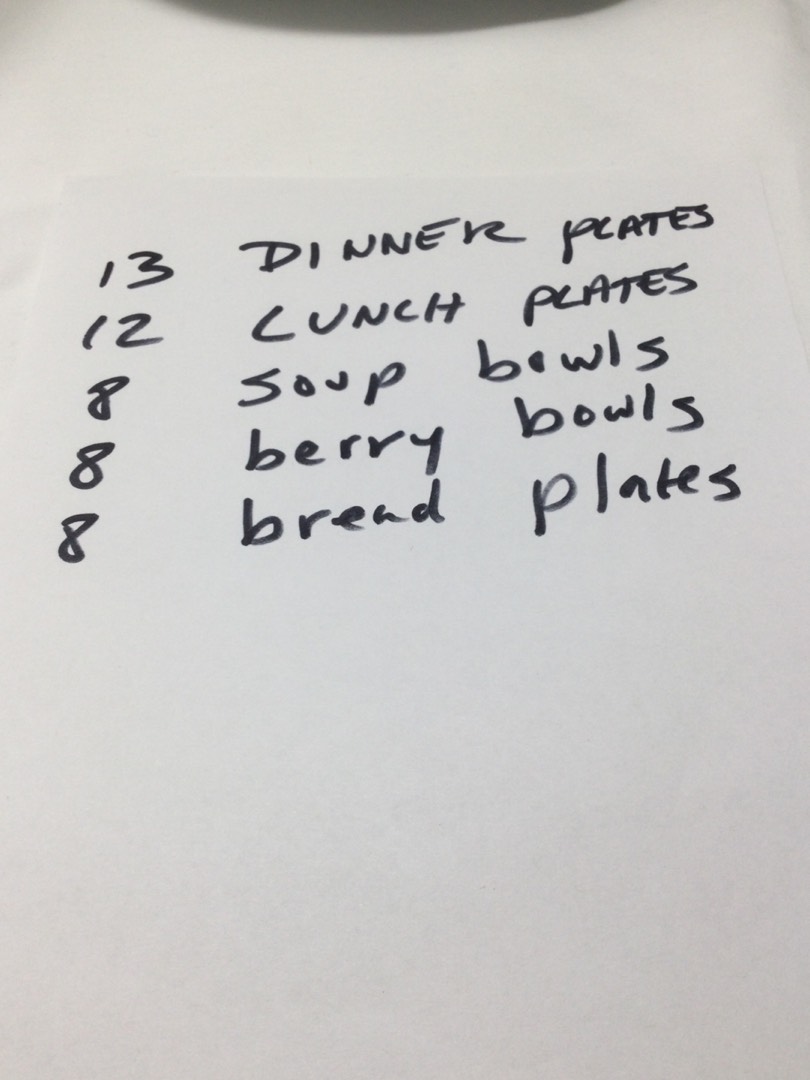 13 DINNER PLATES
12 LUNCH PLATES
8 soup bowls
8 berry bowls
8 bread plates